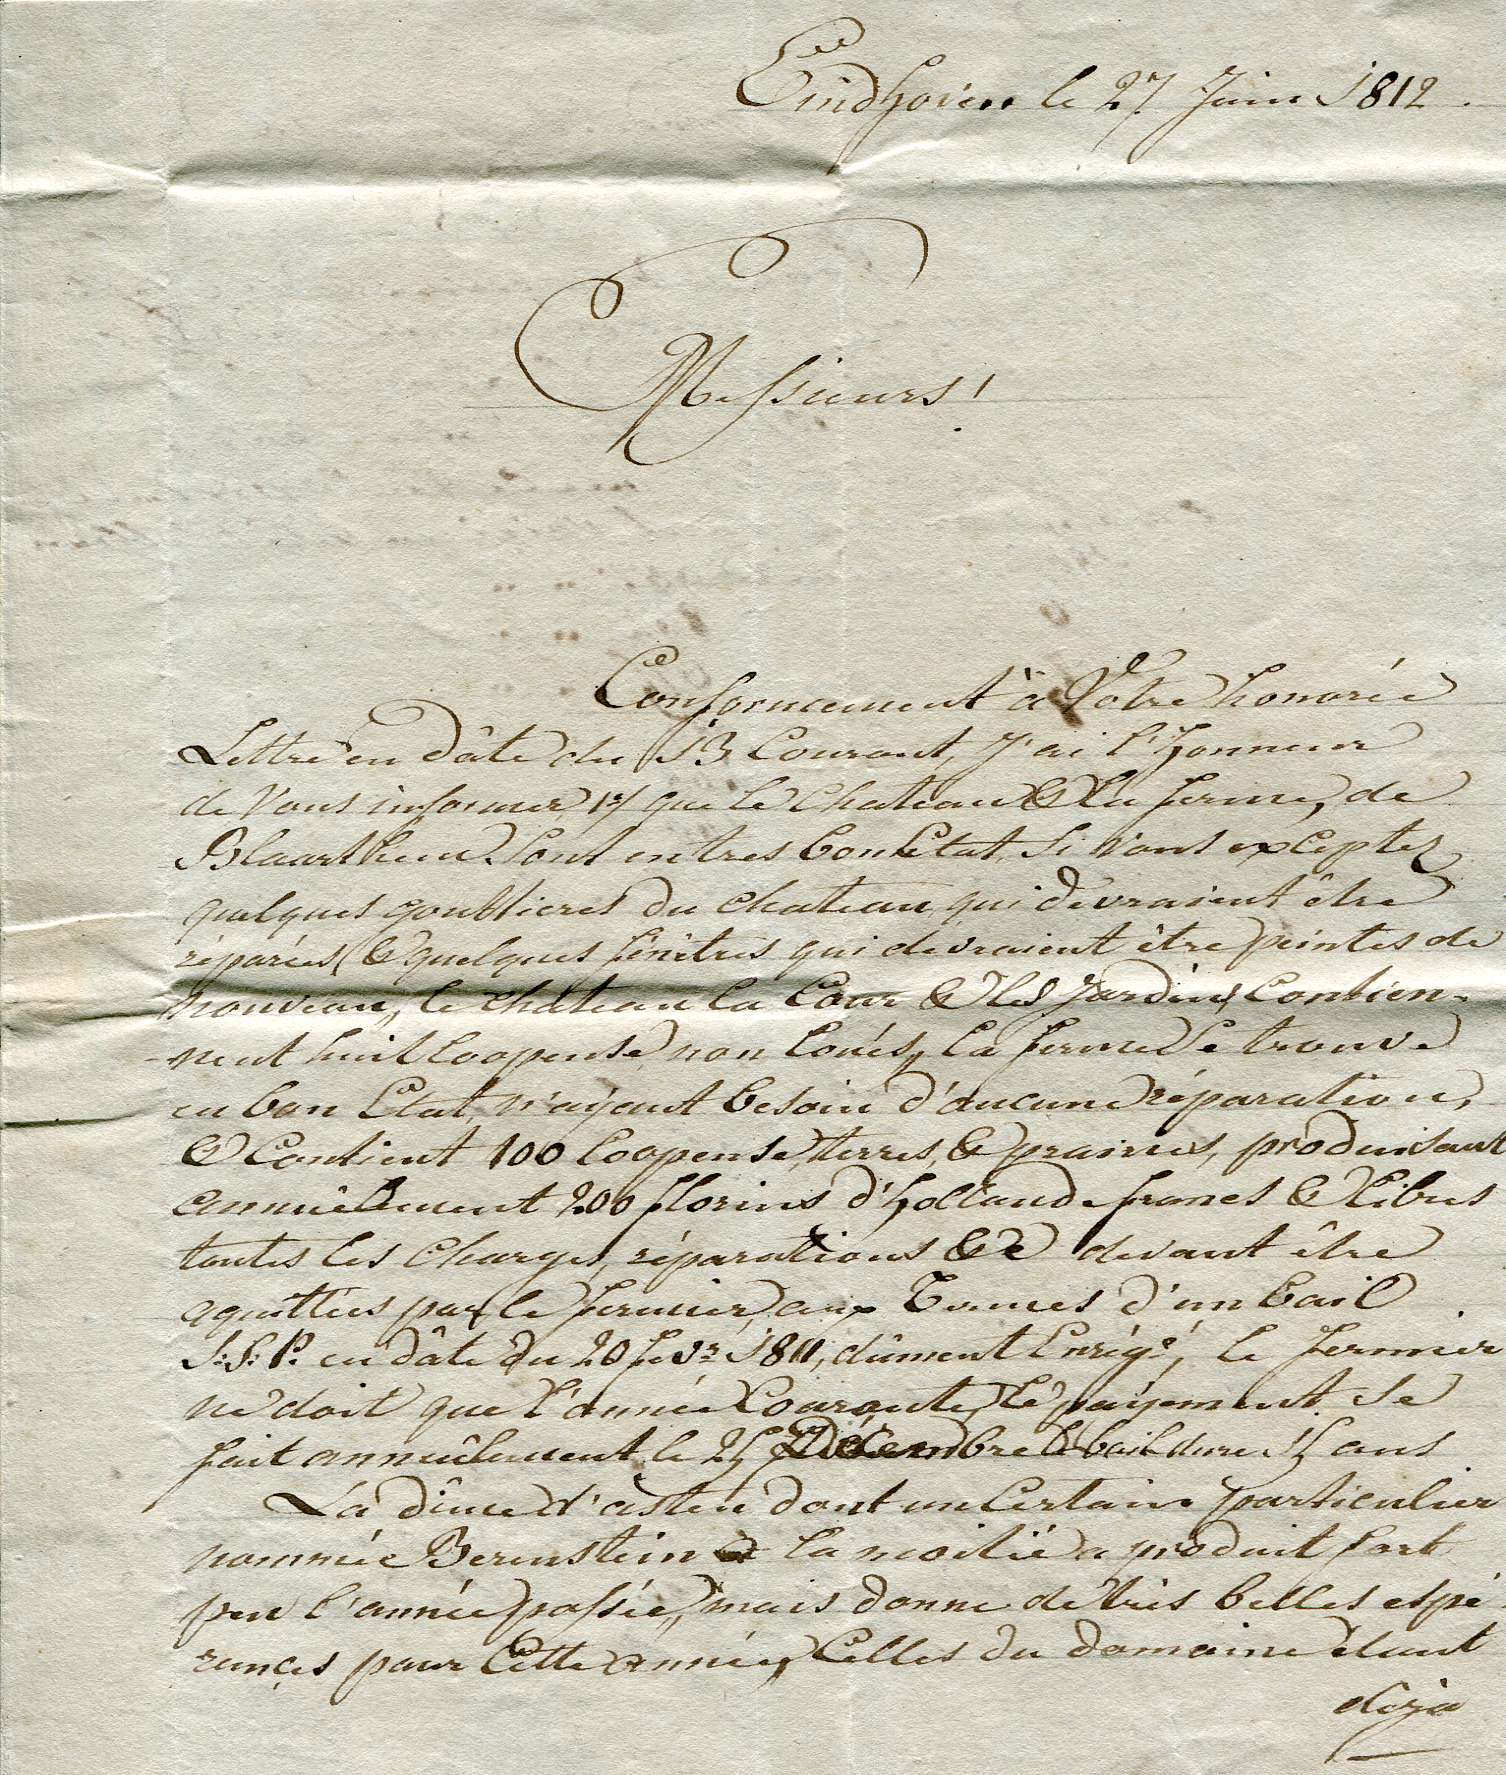 Eindhoven le 27 Juin 1812.
Messieurs!
Conformement à Votre honorée
Lettre en dâte du 13 Courant, J'ai l'honneur
de Vous informer, 1º/ que le Chateau & la ferme, de
Blaarthem sont en tres bon Etat, si vous exceptez
quelques gouttieres du chateau, qui devraient être
réparées, & quelques fénêtres qui devraient être peintes de
nouveau, le château la Cour & les Jardins, Contien-
nent huit loopense, non loués, la ferme se trouve
en bon Etat, n'ayant besoin d'aucune réparation,
& Contient 100 loopense, terres, & prairies, produisant
annuêllement 200 florins d'hollande francs & libres
toutes les charges, réparations &c devant être
aquittées par le fermier, aux Termes d'un bail
S:S:P. en dâte du 20 fevr. 1811, dûment Enrégé., le fermier
ne doit que l'année Courante, le payement se
fait annuêlement le 25 Décembre le bail dure 15 ans
La dîme d'asten dont un Certain particulier
nommée Berenstein a la moitié a produit fort
peu l'année passée, mais donne de très belles espé-
rances pour Cette année, Celles du domaine étant
déja